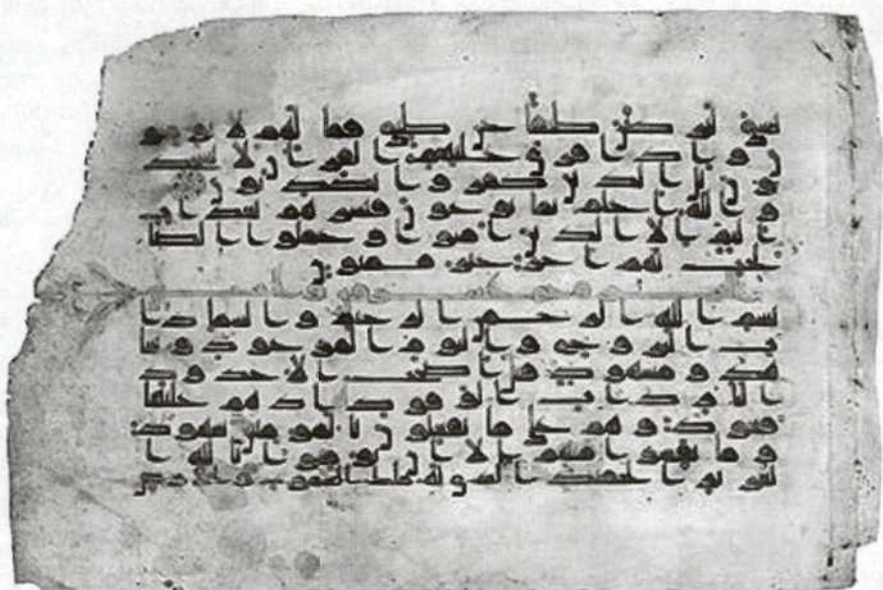 تسق لتركبن طبقا عن طبق فما لهم لا يومنو
ن واذا قرئ عليهم القران لا يسجد
ون بل الذين كفروا يكذبون
والله اعلم بما يوعون فبشرهم بعذاب
اليم الا الذين امنوا وعملوا الصا
لحت لهم اجر غير ممنون
بسم الله الرحمن الرحيم والسما ذا
ت البروج واليوم الموعود وشا
هد ومشهود قتل اصحب الاخدود
النار ذات الوقود اذ هم عليها
قعود وهم على ما يفعلون بالمومنين شهود
وما نقموا منهم الا ان يومنوا بالله ا
لعزيز الحميد الذي له ملك السموت والارض